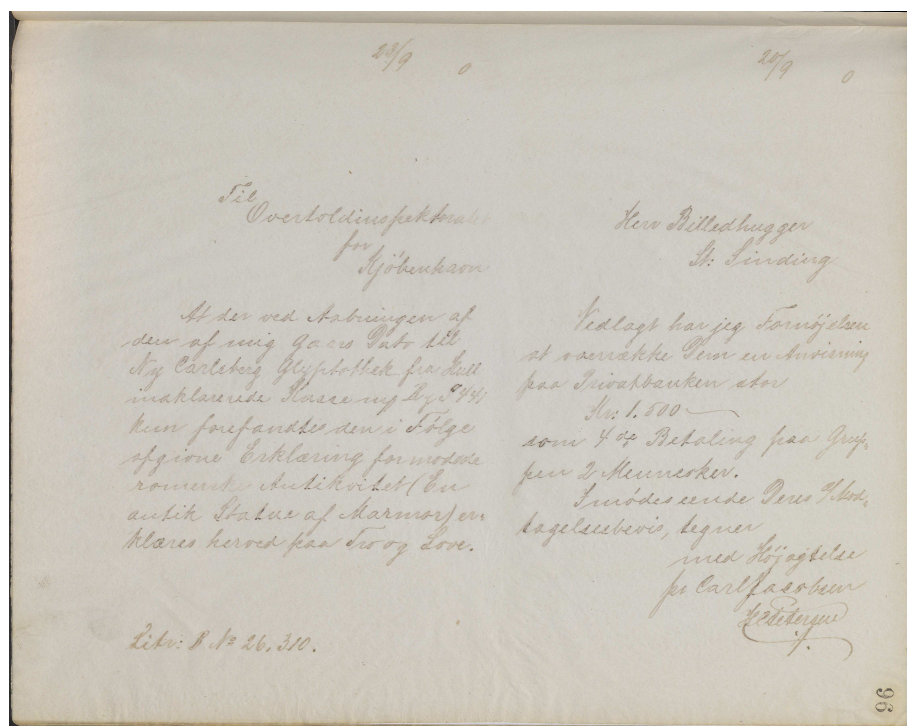 23/9 0
Til
Overtoldinspektoratet
for
Kjøbenhavn
At der ved Aabningen af
den af mig Gaars Dato til
Ny Carlsberg Glyptothek fra Hull
indklarerede Kasse
kun forefandtes den i Følge
afgivne Erklæring formodede
romerske Antikvitet (En
antik Statue af Marmor) er-
klæres herved paa Tro og Love.
Litr: B No 26.310.
20/9 0
Herr Billedhugger
St: Sinding
Vedlagt har jeg Fornøjelsen
at overrække Dem en Anvisning
paa Privatbanken stor
Kr: 1.500
som 4de Betaling paa Grup-
pen 2 Mennesker.
Imødeseende Deres Mod-
tagelsesbevis, tegner
med Højagtelse
pr Carl Jacobsen
HCPetersen
96